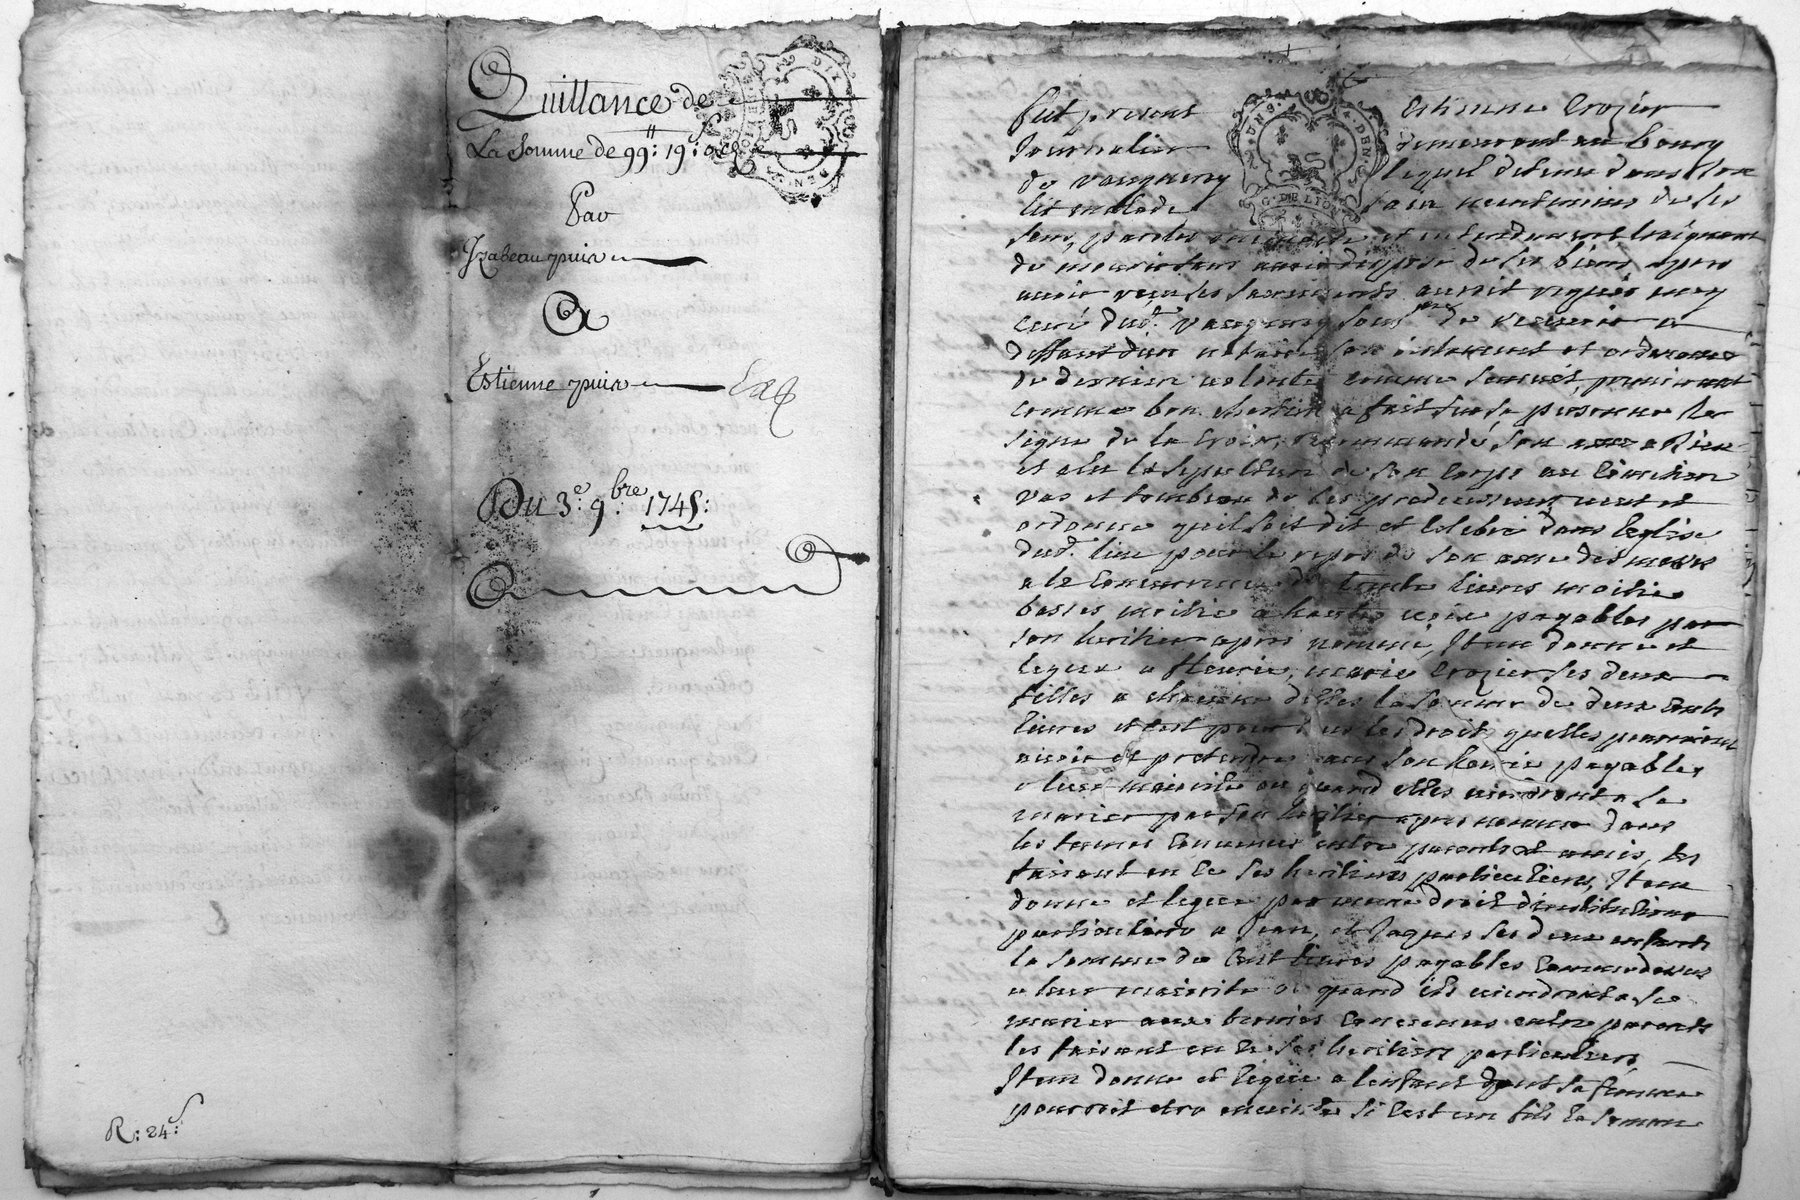 Quillance de
La Somme de 99: 19:
Par
Izabeau puis
A
Estienne puis Exp
Du 3e. 9.bre 1745:
R: 24:s
DIX
G. DE LION
Fut present Estienne Crozier
Journalier demeurant au bourg
de vaugneray lequel detenu dans son
lit malade sain neantmoins de ses
sens, paroles memoire et entendement craignant
de mourir sans avoir dispose de ses biens apres
avoir receu les sacrements auroit requis moy
curé dud. vaugneray souss.né de recevoir a
deffaut d'un notaire son testament et ordonnance
de derniere volonté comme sensuit, premierement
comme bon chretien a fait sur sa personne le
signe de la Croix, recommandé son ame a Dieu
et elu la sepulture de son corps au Cimetiere
vas et tombeau de ses predecesseurs veut et
ordonne qu'il soit dit et Celebré dans l'eglise
dud. lieu pour le repos de son ame des messes
a la Concurrence de trente livres moitié
basses moitié a haute voix payables par
son heritier apres nommé, Item donne et
legue a fleurie, marie Crozier ses deux
filles a chacune d'elles la somme de deux Cents
livres et cest pour tous les droits quelles pourroient
avoir et pretendre dans son hoirie payables
a leur majorité ou quand elles viendront a se
marier par son heritier apres nommé dans
les termes Convenus entre parents et amis, les
faisant en ce ses heritieres particulieres, Item
donne et legue par meme droit d'institution
particuliere a Jean, et Jaques ses deux enfants
la somme de Cent livres payables Comme dessus
a leur majorité ou quand ils viendront a se
marier aux termes Convenus entre parents
les faisant en ce ses heritiers particuliers
Item donne et legue a l'enfant dont sa femme
pourroit etre enceinte si Cest un fils la somme